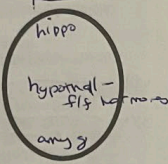 hippo
hypothal-
f/f hormones
amyg